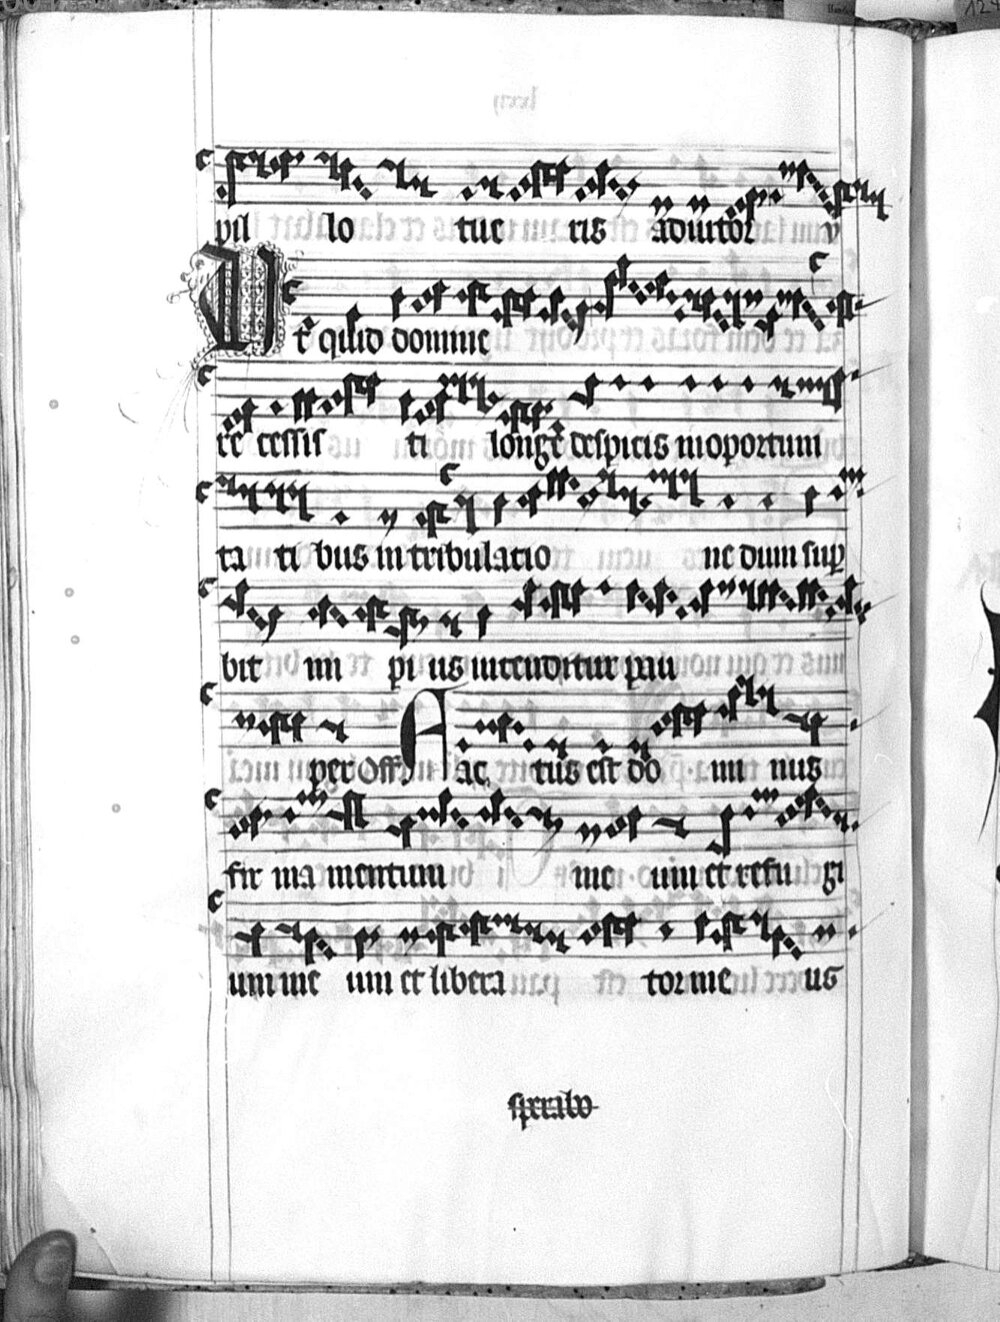 pil lo tue ris adiutor v
Ut quid domine
re cessis ti longe despicis in oportuni
ta ti bus in tribulatio ne dum sup
bit im pi us incenditur pau
per Off Fac tus est do mi nus
fir ma mentum me um et refu gi
um me um et libera tor me us
sperabo